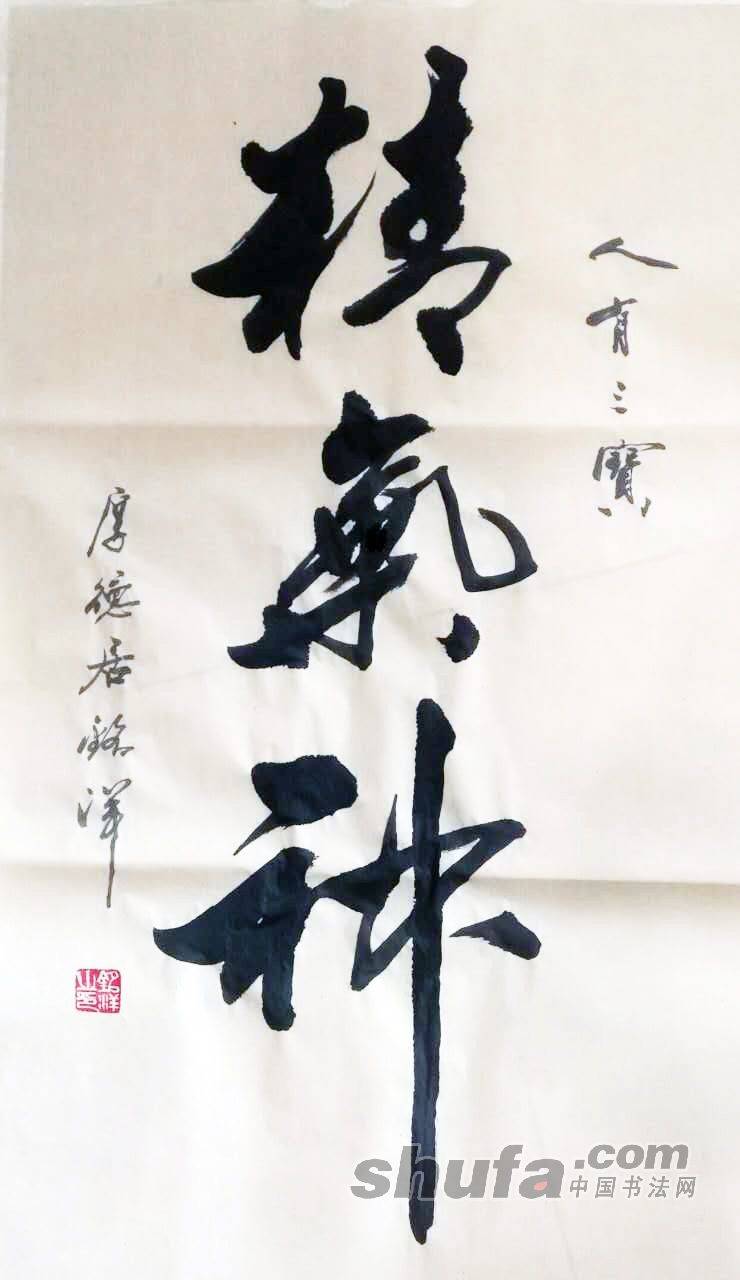 人有三寶
精氣神
厚德居銘洋
銘洋之印
shufa.com
中国书法网